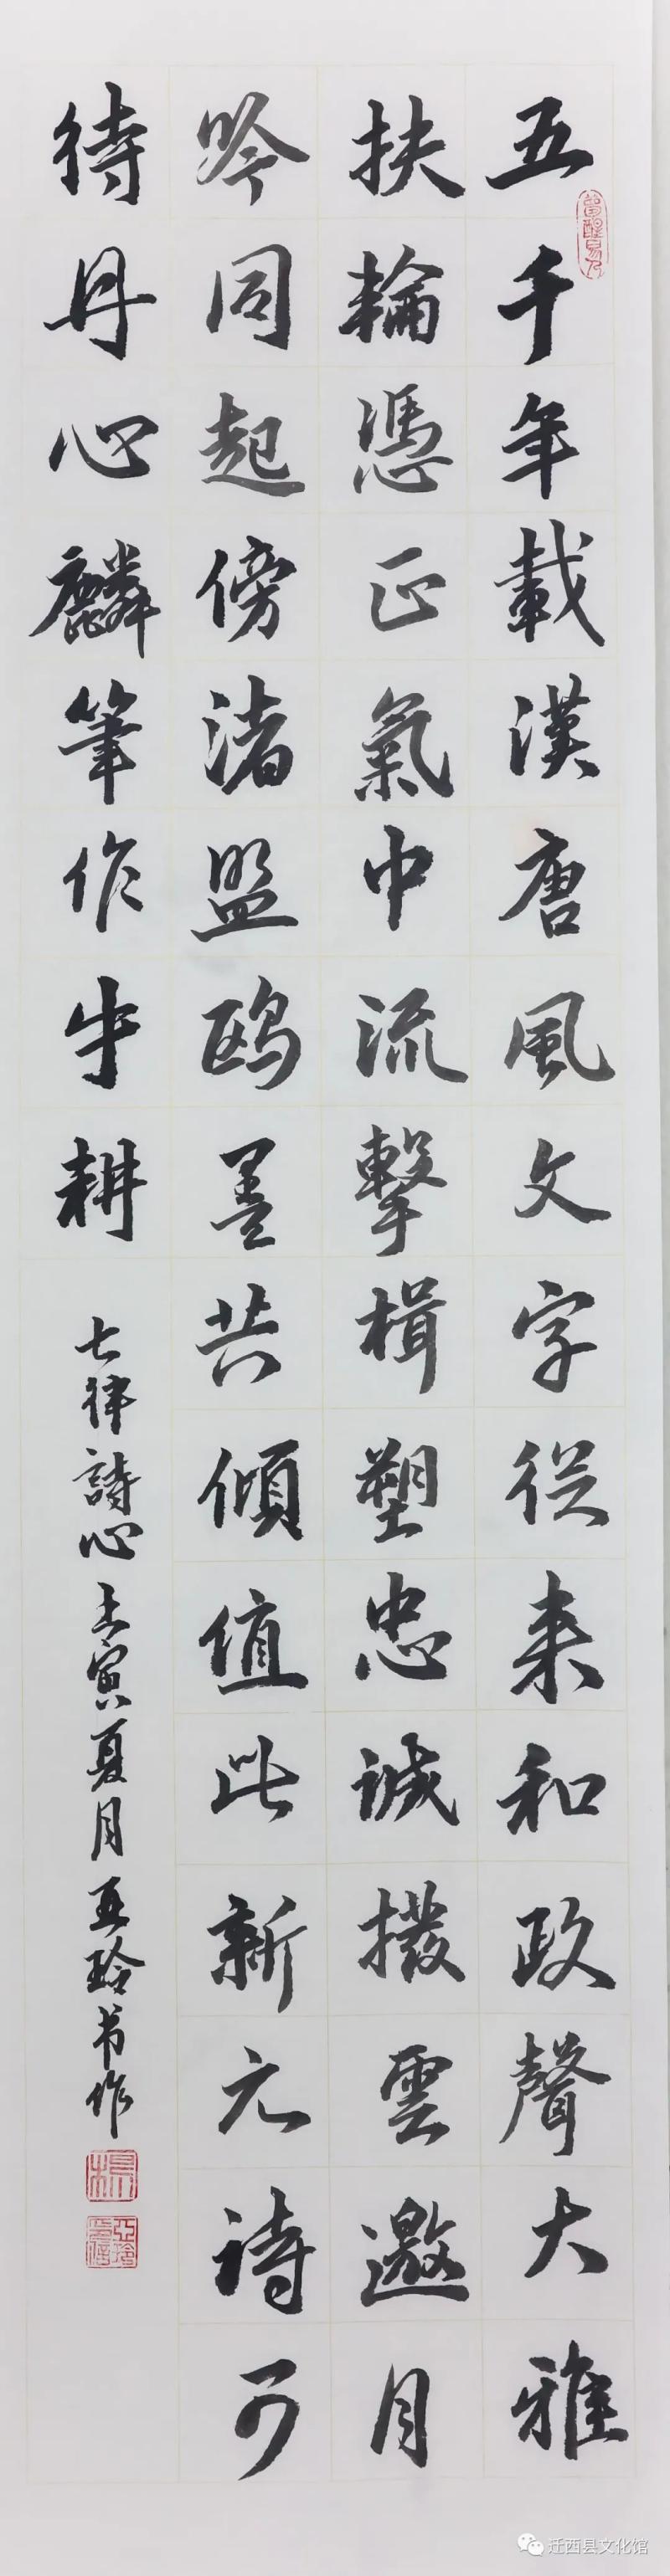 五千年載漢唐風文字從来和政聲大雅
扶輪憑正氣中流擊楫塑忠誠撥雲邀月
吟同起傍渚盟鷗墨共傾值此新元詩可
待丹心麟筆作牛耕
七律詩心壬寅夏月亚玲书作
迁西县文化馆